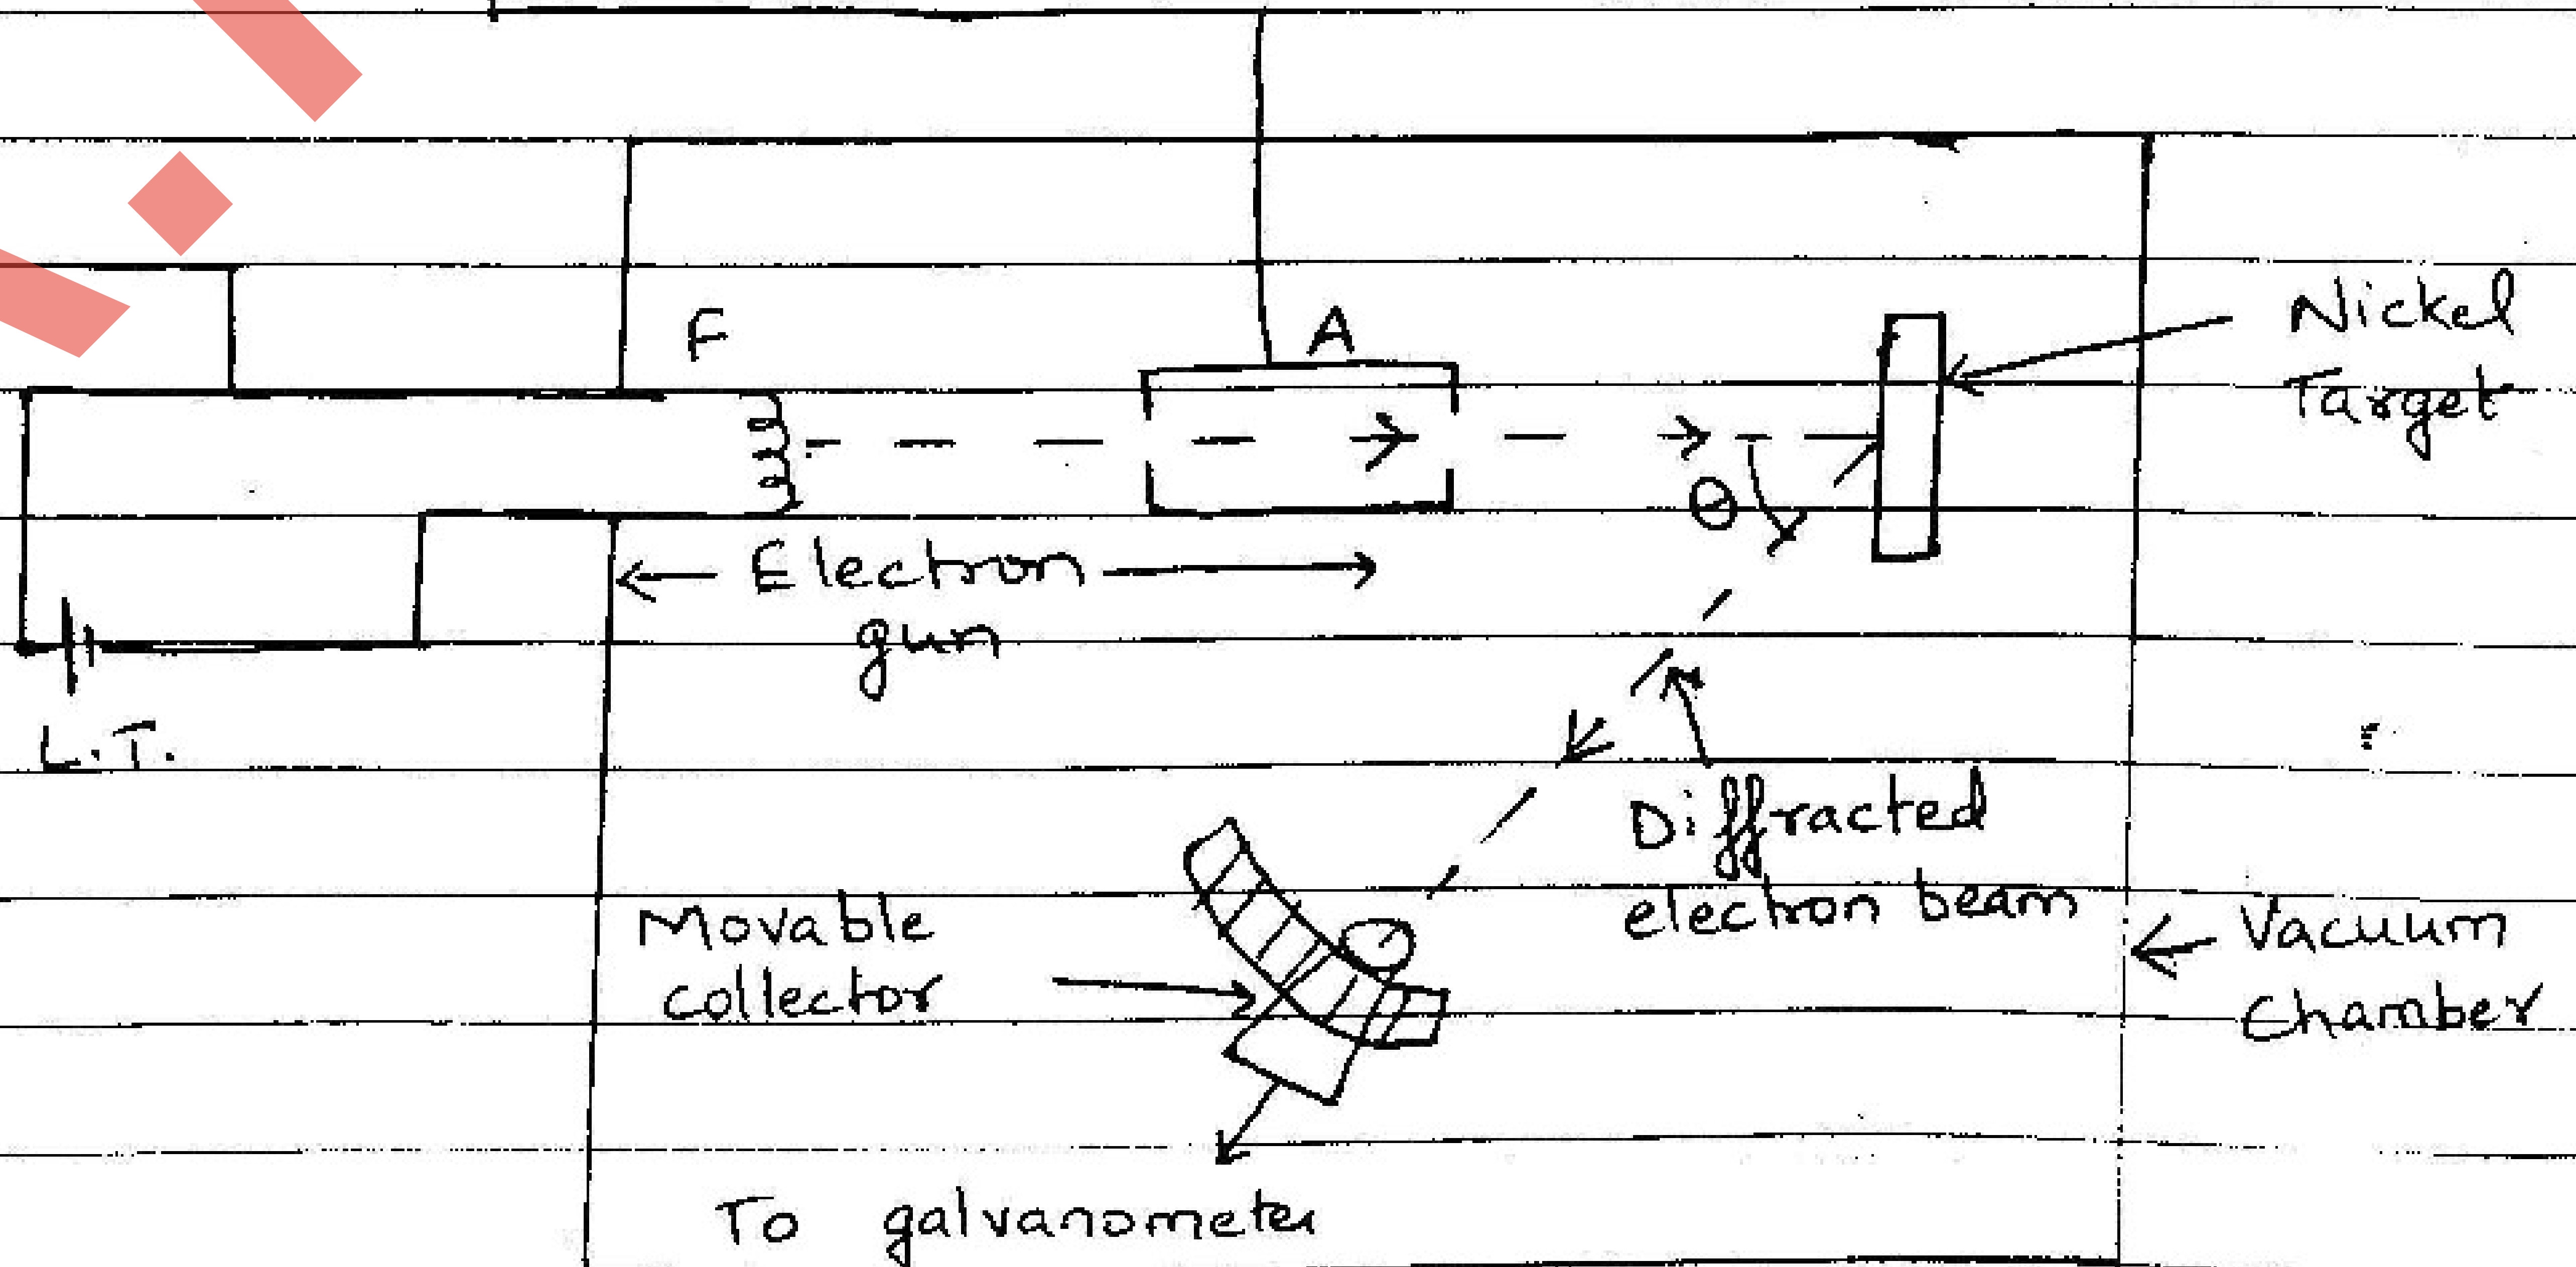 F
A
Nickel
Target
θ
Electron
gun
L.T.
Diffracted
electron beam
Movable
collector
Vacuum
Chamber
To galvanometer